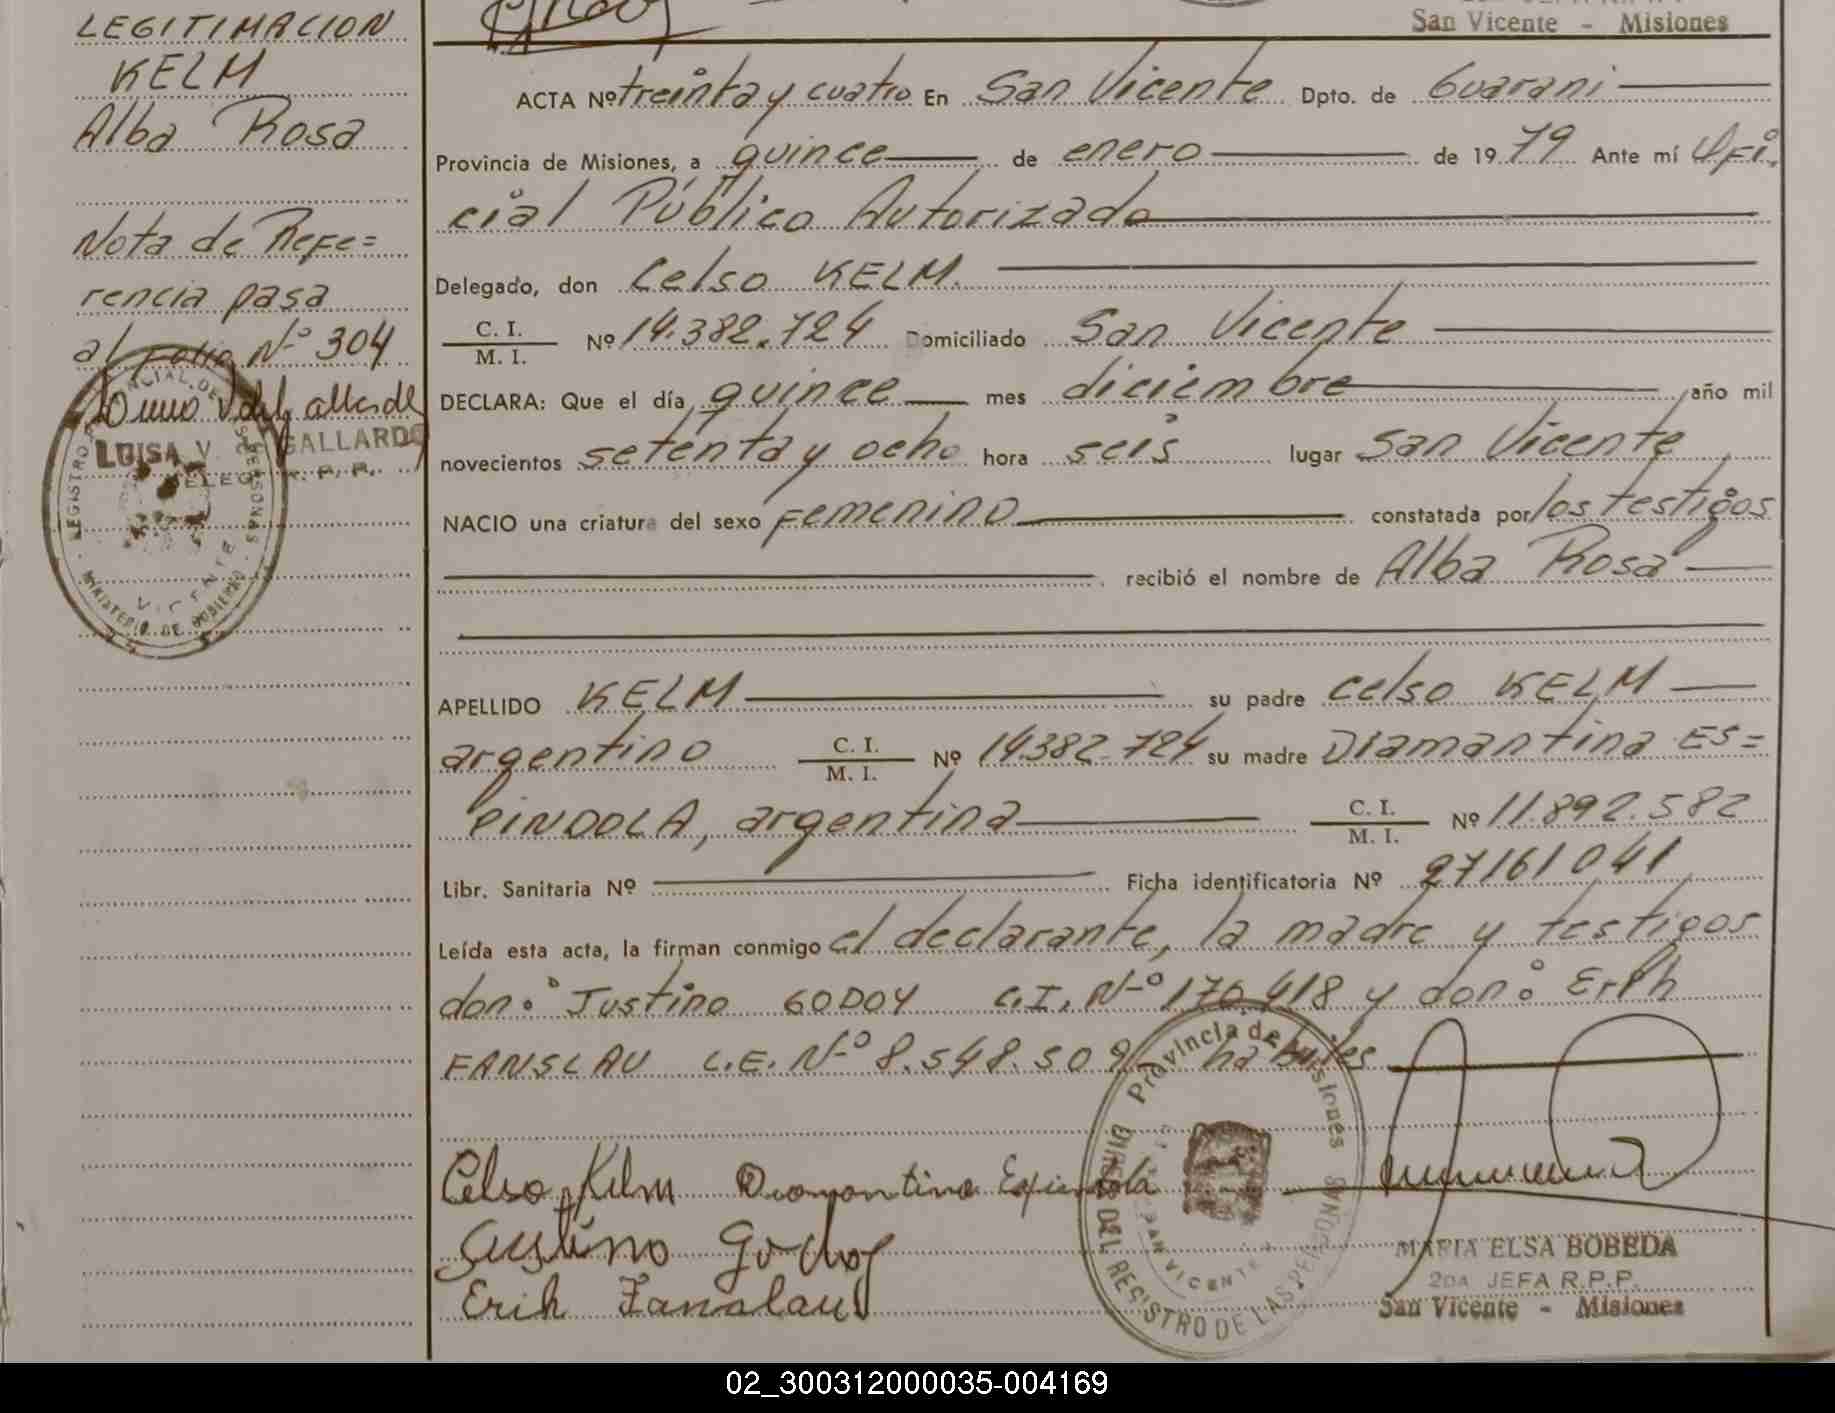 LEGITIMACION
KELM
Alba Rosa
Nota de Refe=
rencia pasa
al Folio Nº 304
LUISA V. GALLARDO
DELEG. R. P. P.
REGISTRO PROVINCIAL DE LAS PERSONAS
VICENTE
MINISTERIO DE GOBIERNO
San Vicente - Misiones
ACTA Nº treinta y cuatro En San Vicente Dpto. de Guarani
Provincia de Misiones, a quince de enero de 1979 Ante mí Ofi.
cial Público Autorizado
Delegado, don Celso KELM.
C. I. / M. I. Nº 14.382.724 Domiciliado San Vicente
DECLARA: Que el día quince mes diciembre año mil
novecientos setenta y ocho hora seis lugar San Vicente
NACIO una criatura del sexo Femenino constatada por los testigos
recibió el nombre de Alba Rosa
APELLIDO KELM su padre Celso KELM
argentino C. I. / M. I. Nº 14.382.724 su madre Diamantina ES=
PINDOLA, argentina C. I. / M. I. Nº 11.892.582
Libr. Sanitaria Nº Ficha identificatoria Nº 27161041
Leída esta acta, la firman conmigo el declarante, la madre y testigos
don: Justino GODOY C.I. Nº 170.418 y don: Erih
FANSLAU L.E. Nº 8.548.509 habiles
Celso Kelm Diamantina Espindola
Justino Godoy
Erih Fanslau
Provincia de Misiones
DIRECC. DEL REGISTRO DE LAS PERSONAS
SAN VICENTE
MARIA ELSA BOBEDA
2DA JEFA R.P.P.
San Vicente - Misiones
02_300312000035-004169